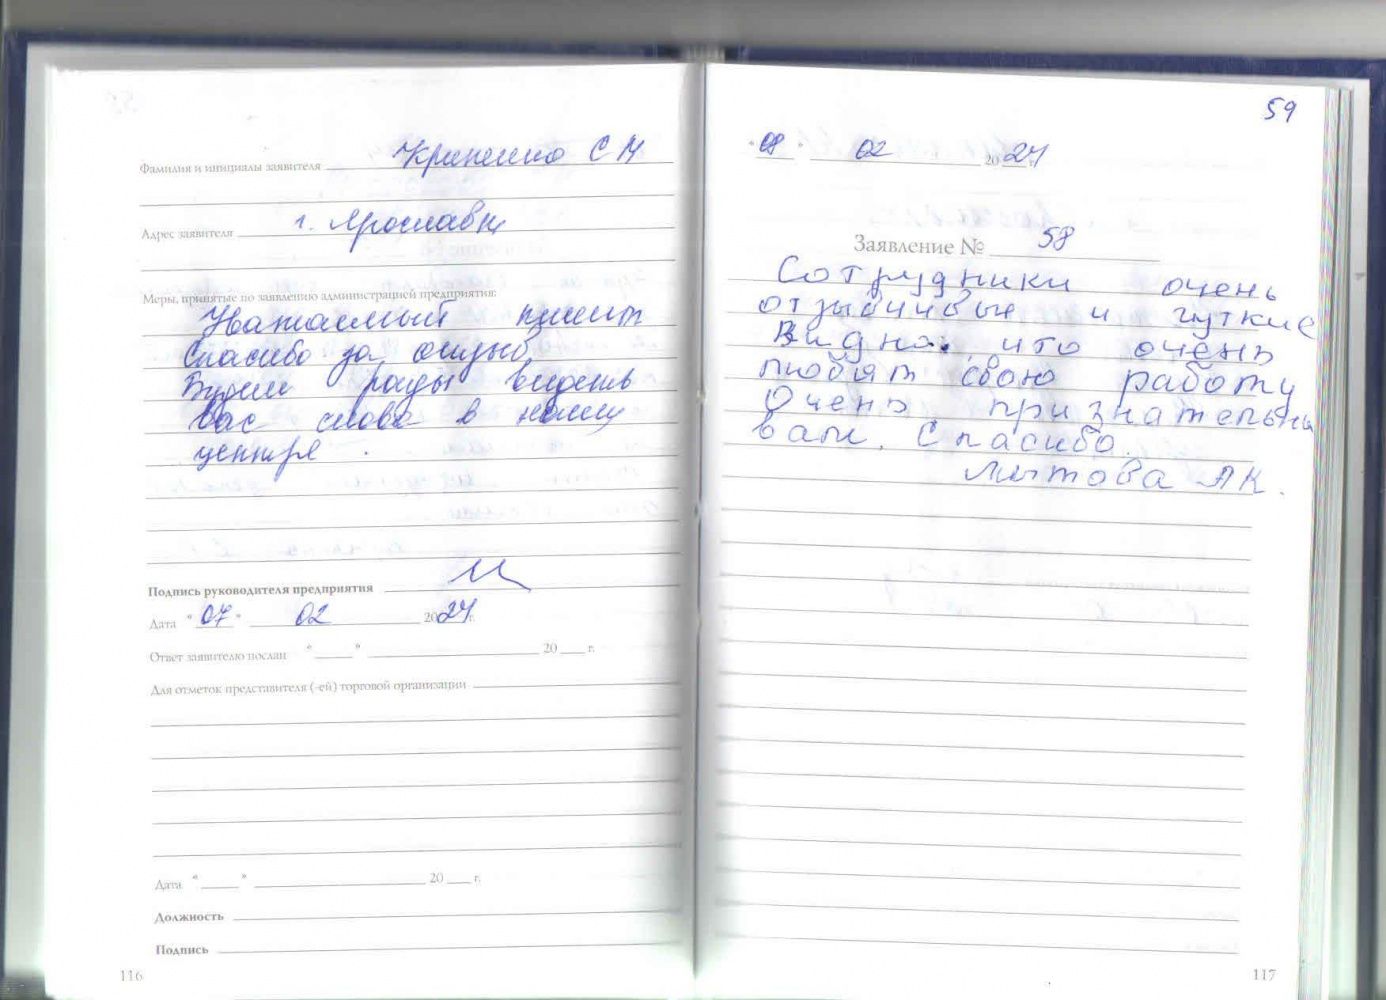 Фамилия и инициалы заявителя С М
Адрес заявителя г. Ярославль
Меры, принятые по заявлению администрацией предприятия:
Уважаемый клиент
Спасибо за отзыв,
Будем рады видеть
Вас снова в нашем
центре .
Подпись руководителя предприятия
Дата "07" 02 2024г.
Ответ заявителю послан " " 20 г.
Для отметок представителя (-ей) торговой организации
Дата " " 20 г.
Должность
Подпись
116
59
"08" 02 2024
Заявление № 58
Сотрудники очень
отзывчивые и чуткие
Видно, что очень
любят свою работу
Очень признательны
вам. Спасибо.
Лытова АК.
117